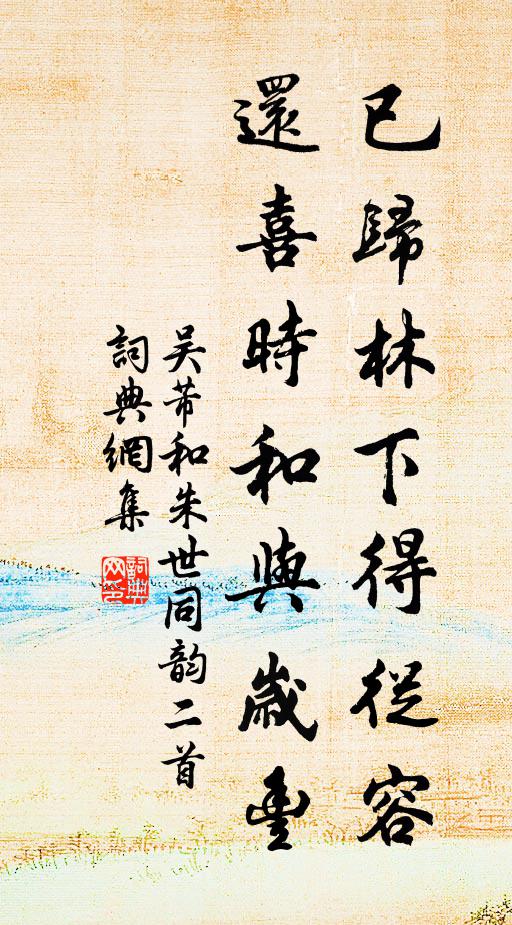 已歸林下得從容
還喜時和與歲豐
吴芾和朱世同韵二首
詞典網集
詞典
网印